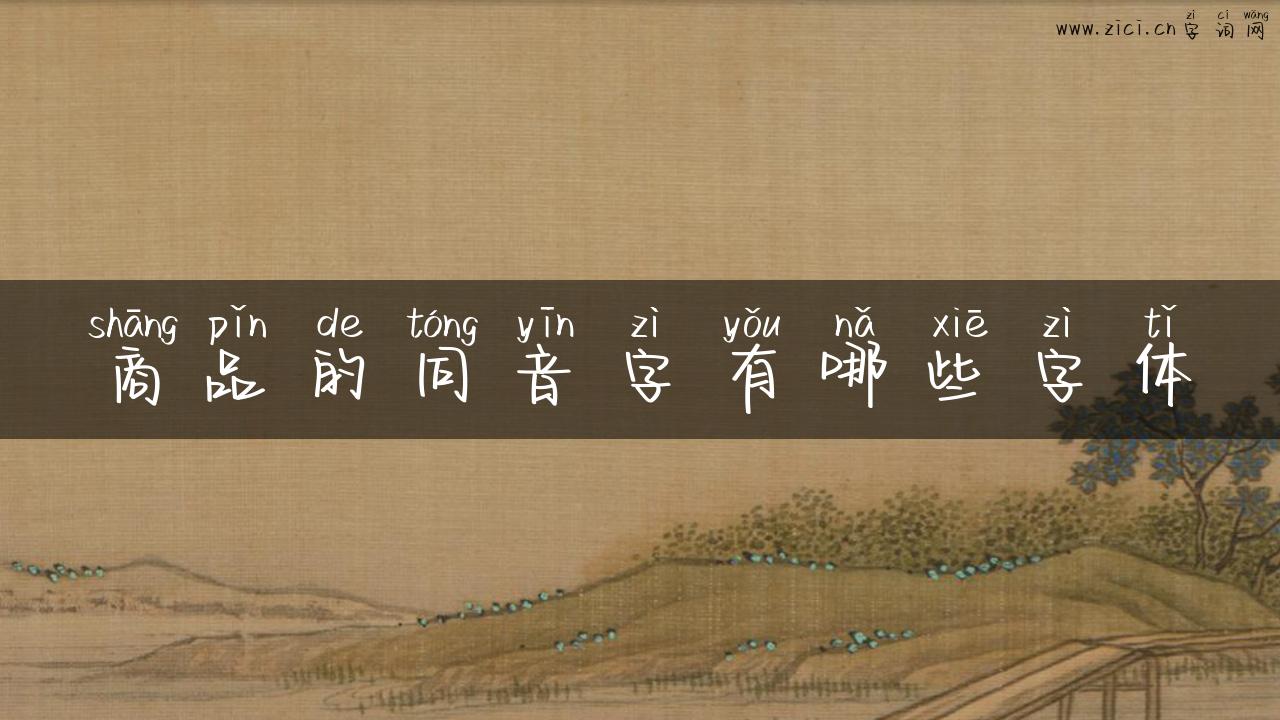 zì cí wǎng
www.zici.cn字词网
shāng pǐn de tóng yīn zì yǒu nǎ xiē zì tǐ
商品的同音字有哪些字体